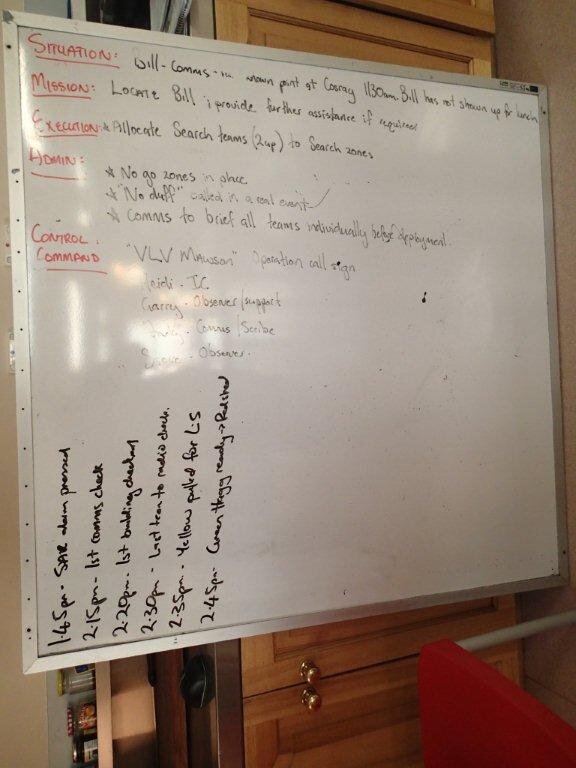 SITUATION: Bill - Comms - known point at Cosray 1130am. Bill has not shown up for lunch
MISSION: Locate Bill & provide further assistance if required
EXECUTION: * Allocate Search teams (2up) to Search zones
ADMIN: * No go zones in place
* "No duff" called in a real event
* Comms to brief all teams individually before deployment.
CONTROL. COMMAND "VLV MAWSON" Operation call sign
Heidi - IC
Garry - Observer/support
- Comms/Scribe
- Observer.
1.45pm - SAR alarm pressed
2.15pm - 1st comms check
2.20pm - 1st building checked
2.30pm - Last team to radio check.
2.35pm - Yellow pulled for L.S
2.45pm - Green Hagg ready →